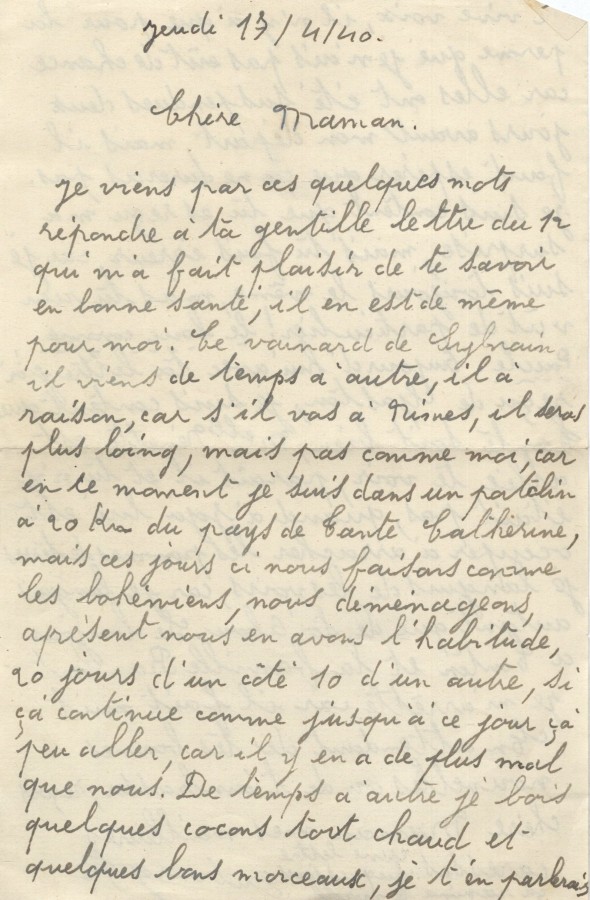 jeudi 17/4/40.
Chère Maman.
Je viens par ces quelques mots
répondre à ta gentille lettre du 12
qui m'a fait plaisir de te savoir
en bonne santé, il en est de même
pour moi. Ce vainard de Sylvain
il viens de tèmps à autre, il à
raison, car s'il vas à Nimes, il seras
plus loing, mais pas comme moi, car
en ce moment je suis dans un patelin
à 20 Km du pays de Tante Cathèrine,
mais ces jours ci nous faisons comme
les bohémiens, nous déménageons,
aprésent nous en avons l'habitude,
20 jours d'un côté 10 d'un autre, si
çà continue comme jusqu'à ce jour çà
peu aller, car il y en a de plus mal
que nous. De tèmps à autre je bois
quelques cocons tout chaud et
quelques bons morceaux, je t'én parlerais